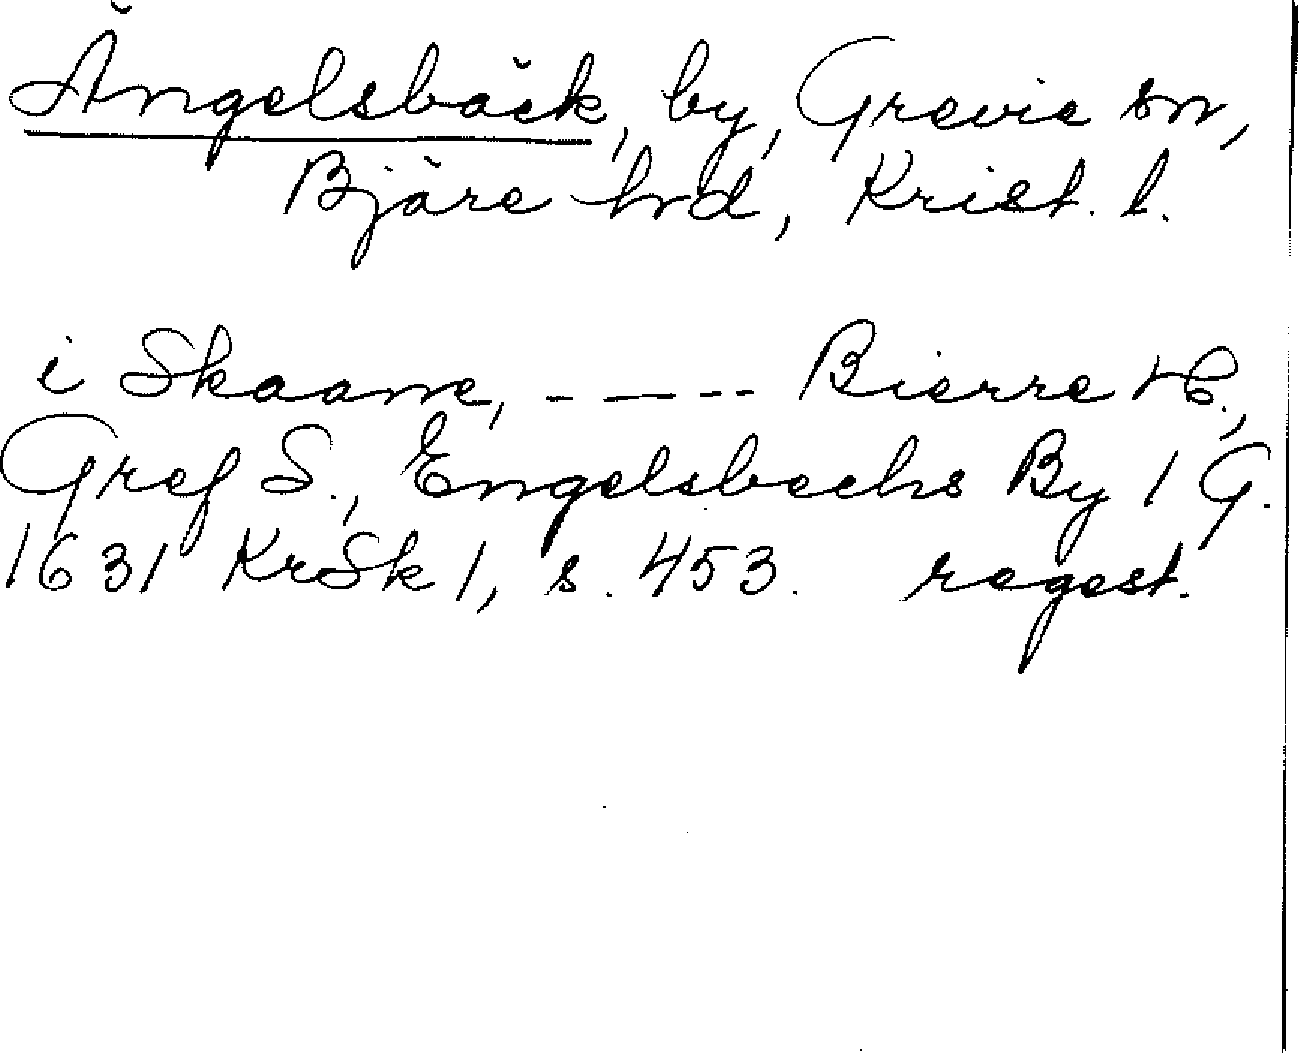 Ängelsbäck, by, Grevie sn,
Bjäre hrd, Krist. l.
i Skaane, - — - - - Bierre H.,
Gref S., Engelsbechs By 1 G.
1631 KrSk 1, s. 453. regest.